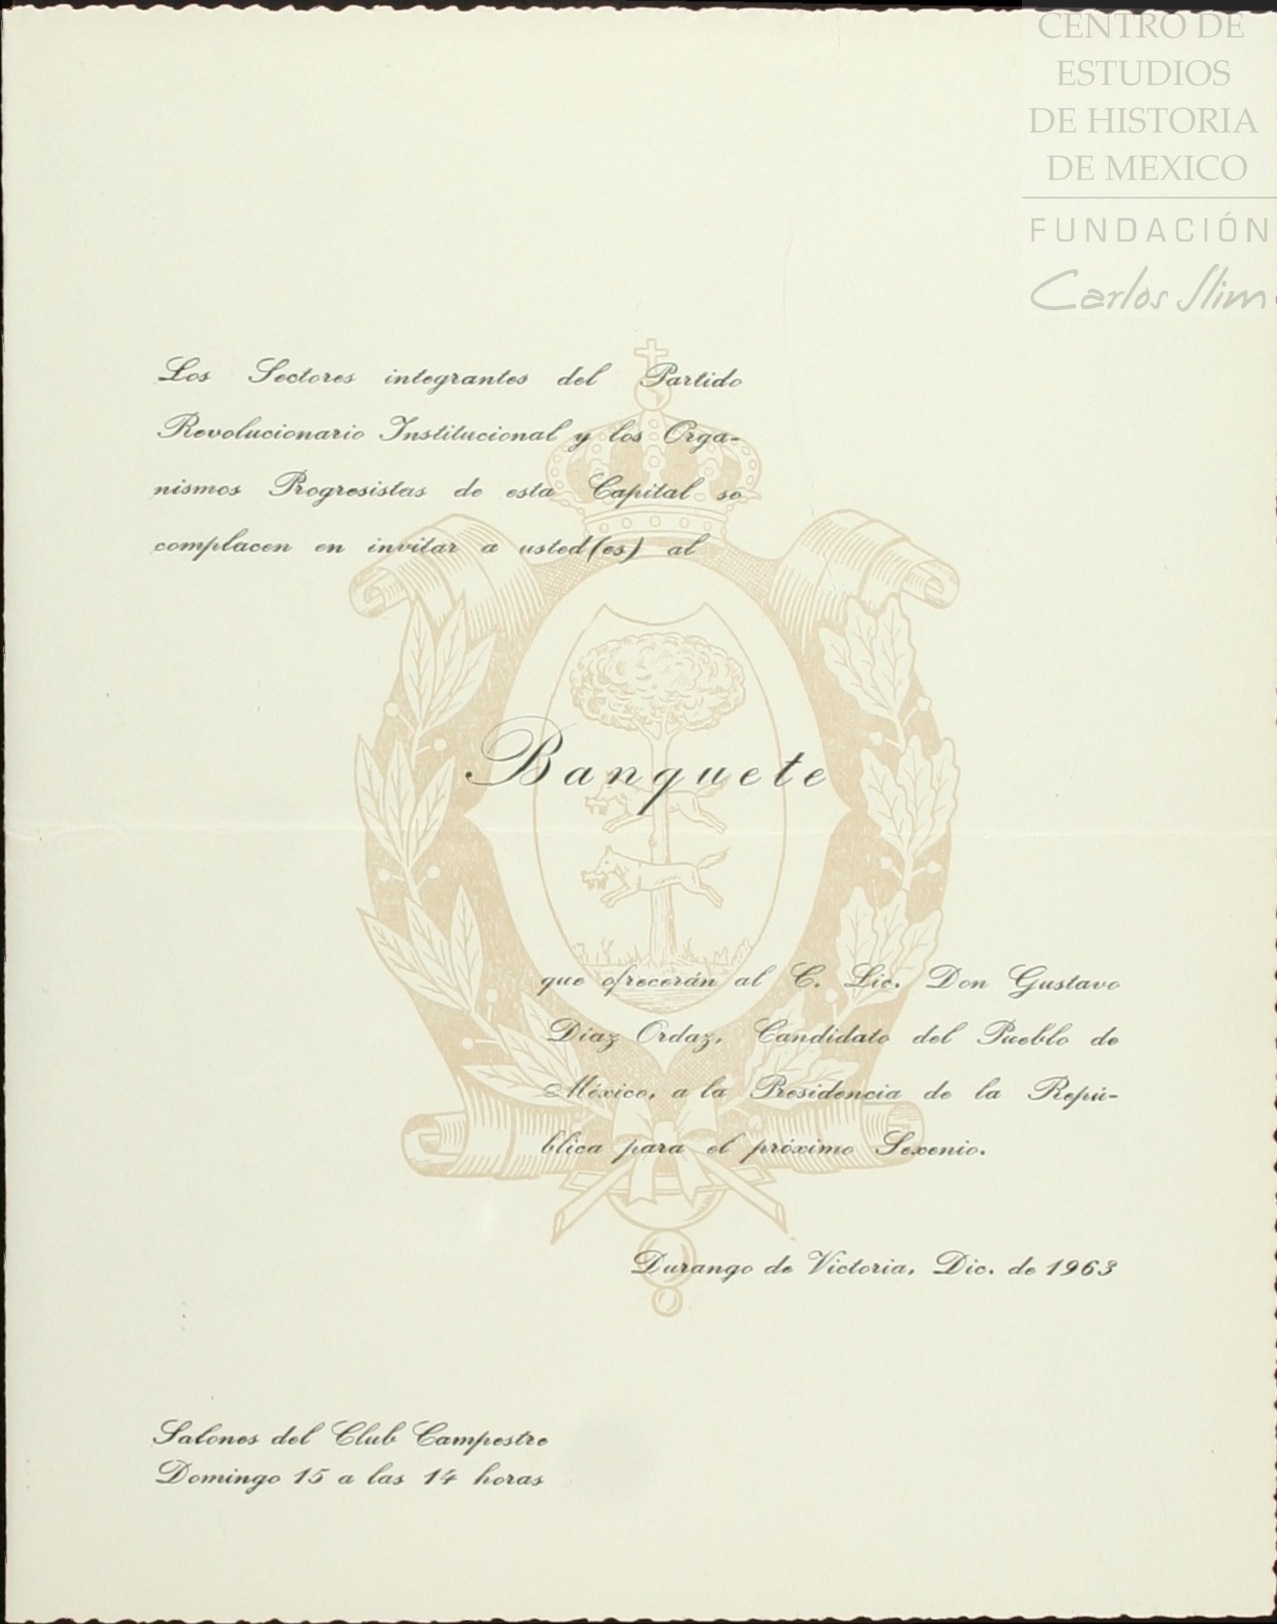 CENTRO DE
ESTUDIOS
DE HISTORIA
DE MEXICO
FUNDACIÓN
Carlos Slim
Los Sectores integrantes del Partido
Revolucionario Institucional y los Orga-
nismos Progresistas de esta Capital se
complacen en invitar a usted(es) al
Banquete
que ofrecerán al C. Lic. Don Gustavo
Díaz Ordaz, Candidato del Pueblo de
México, a la Presidencia de la Repú-
blica para el próximo Sexenio.
Durango de Victoria, Dic. de 1963
Salones del Club Campestre
Domingo 15 a las 14 horas